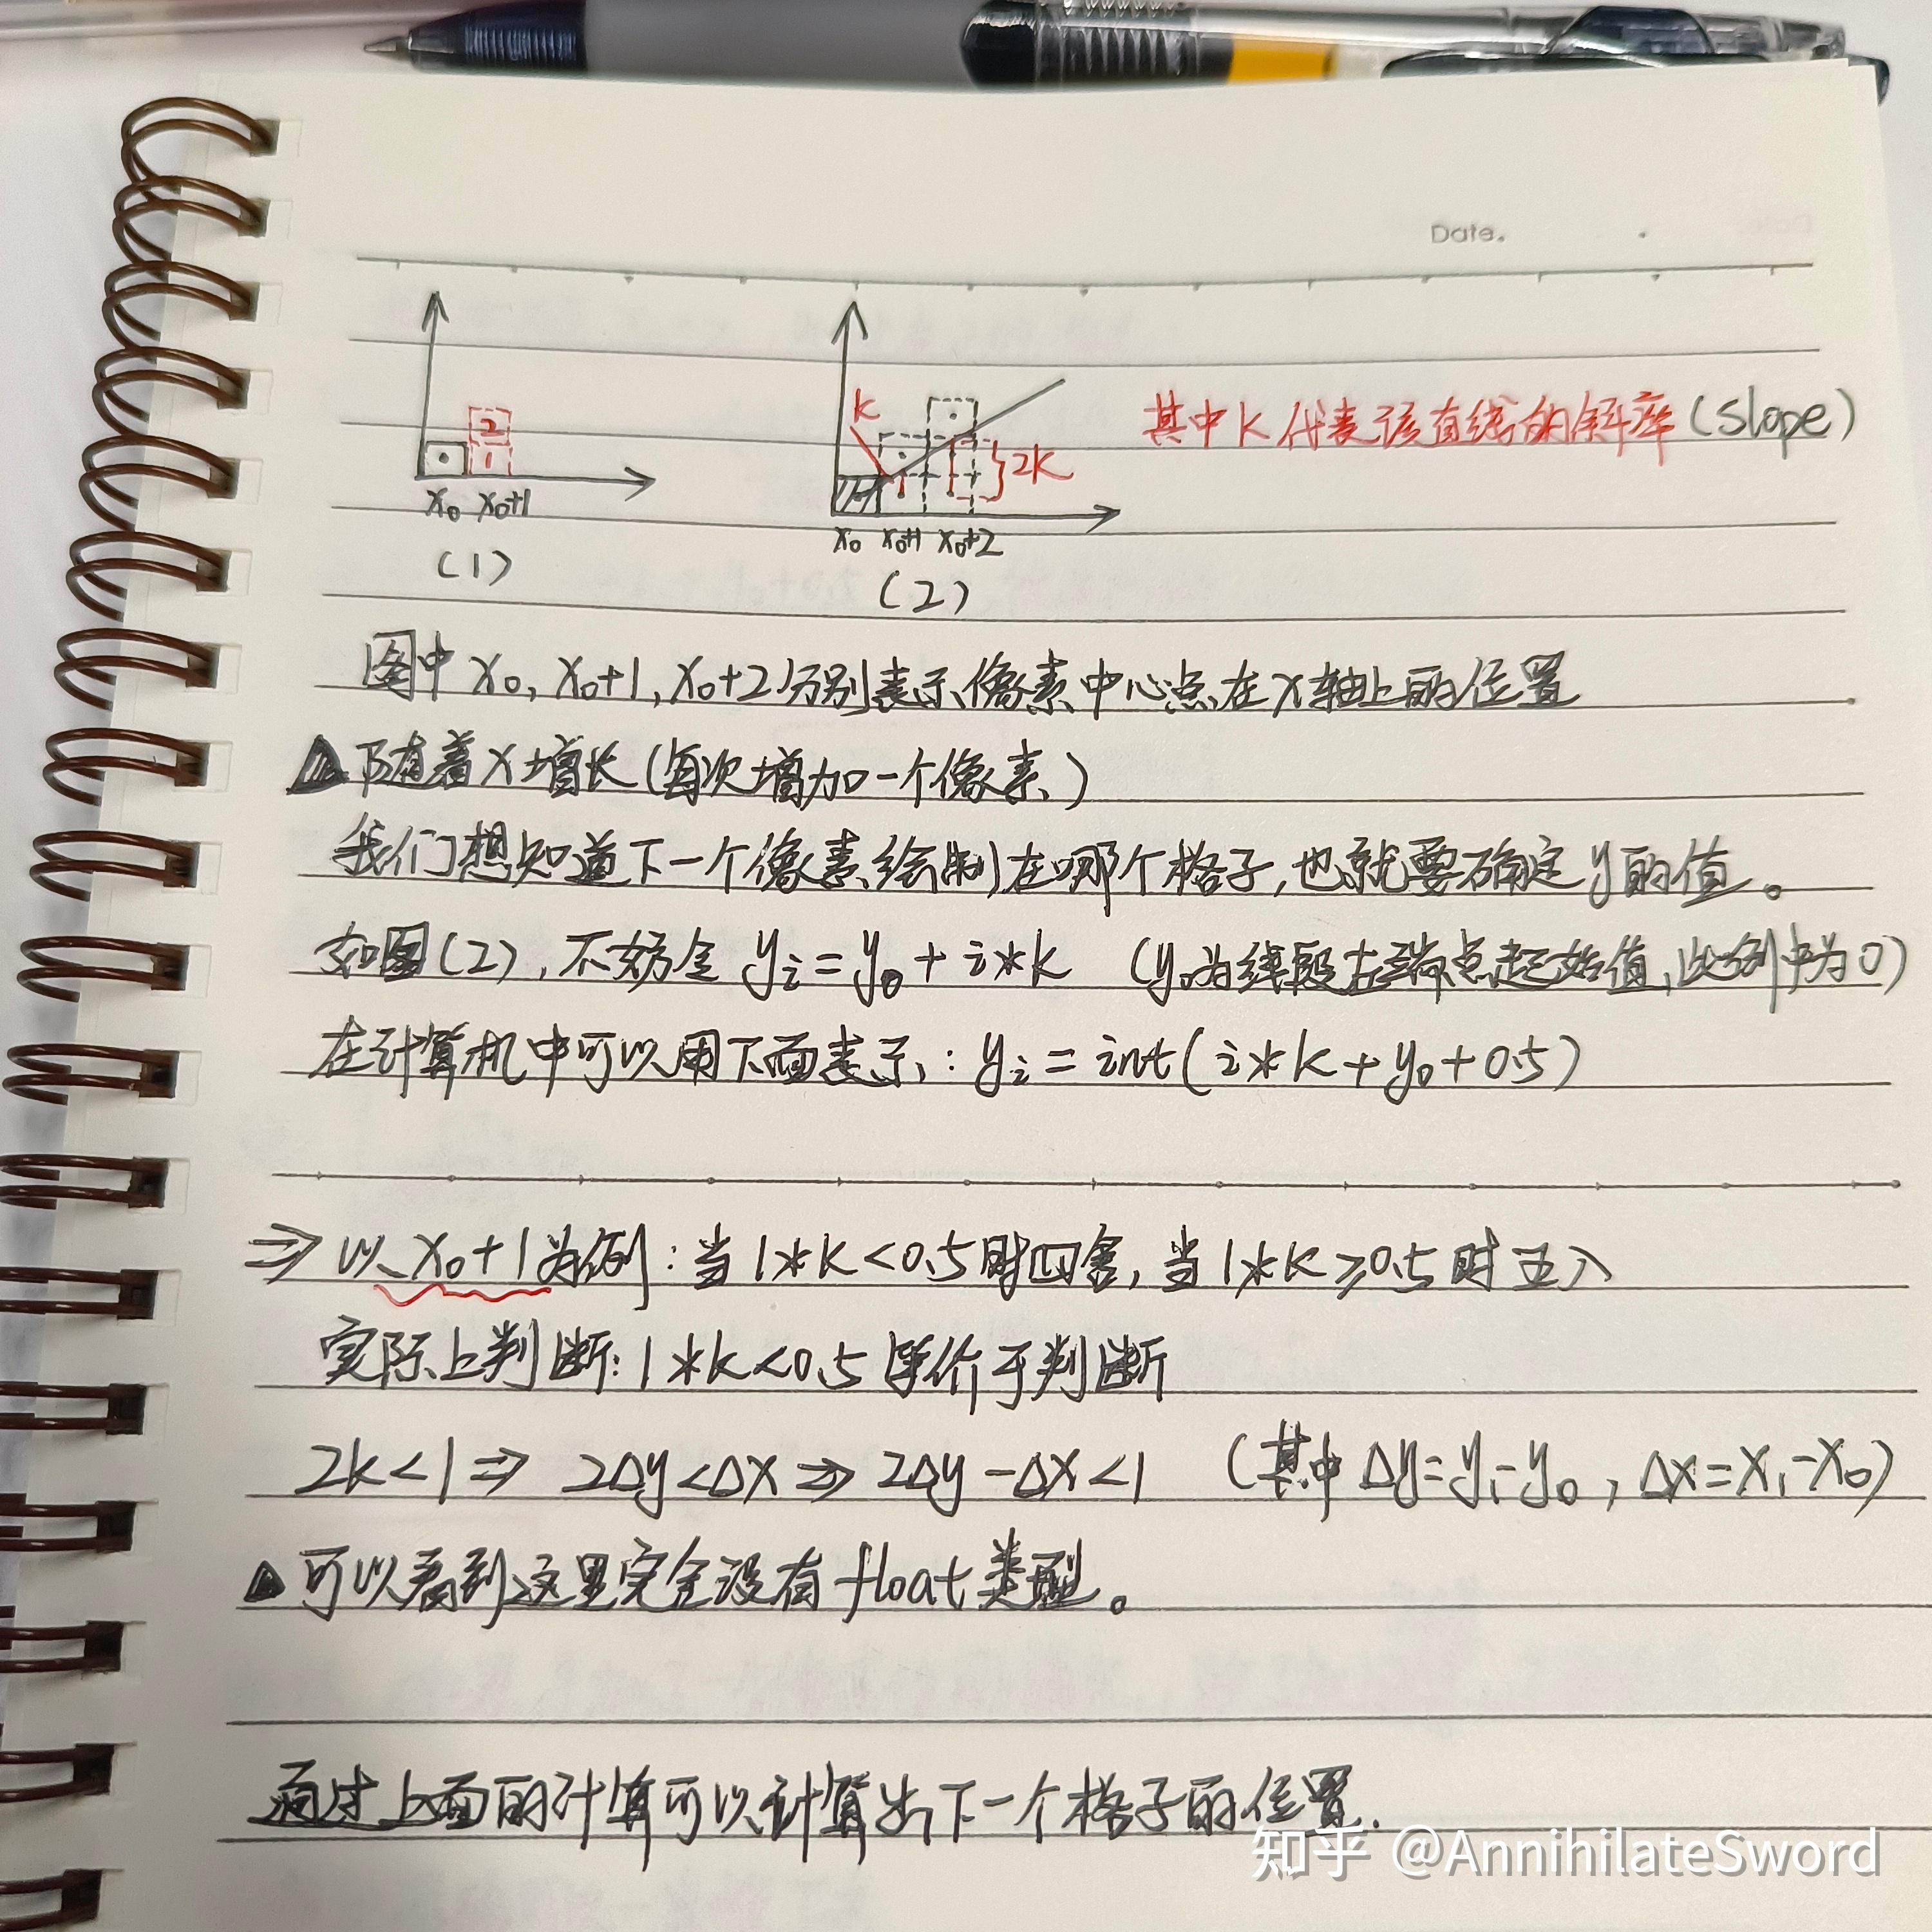 Date.
2
1
x₀ x₀+1
(1)
K
2K
x₀ x₀+1 x₀+2
(2)
其中K代表该直线的斜率(slope)
图中x₀,x₀+1,x₀+2分别表示像素中心点在x轴上的位置
▲随着x增长(每次增加一个像素)
我们想知道下一个像素绘制在哪个格子,也就要确定y的值。
如图(2),不妨令 yᵢ=y₀+i*k (y₀为线段左端点起始值,此例中为0)
在计算机中可以用下面表示:yᵢ=int(i*k+y₀+0.5)
⇒以x₀+1为例:当1*k<0.5时四舍,当1*k≥0.5时五入
实际上判断:1*k<0.5等价于判断
2k<1⇒2Δy<Δx⇒2Δy-Δx<1 (其中Δy=y₁-y₀,Δx=x₁-x₀)
▲可以看到这里完全没有float类型。
通过上面的计算可以计算出下一个格子的位置.
知乎 @AnnihilateSword